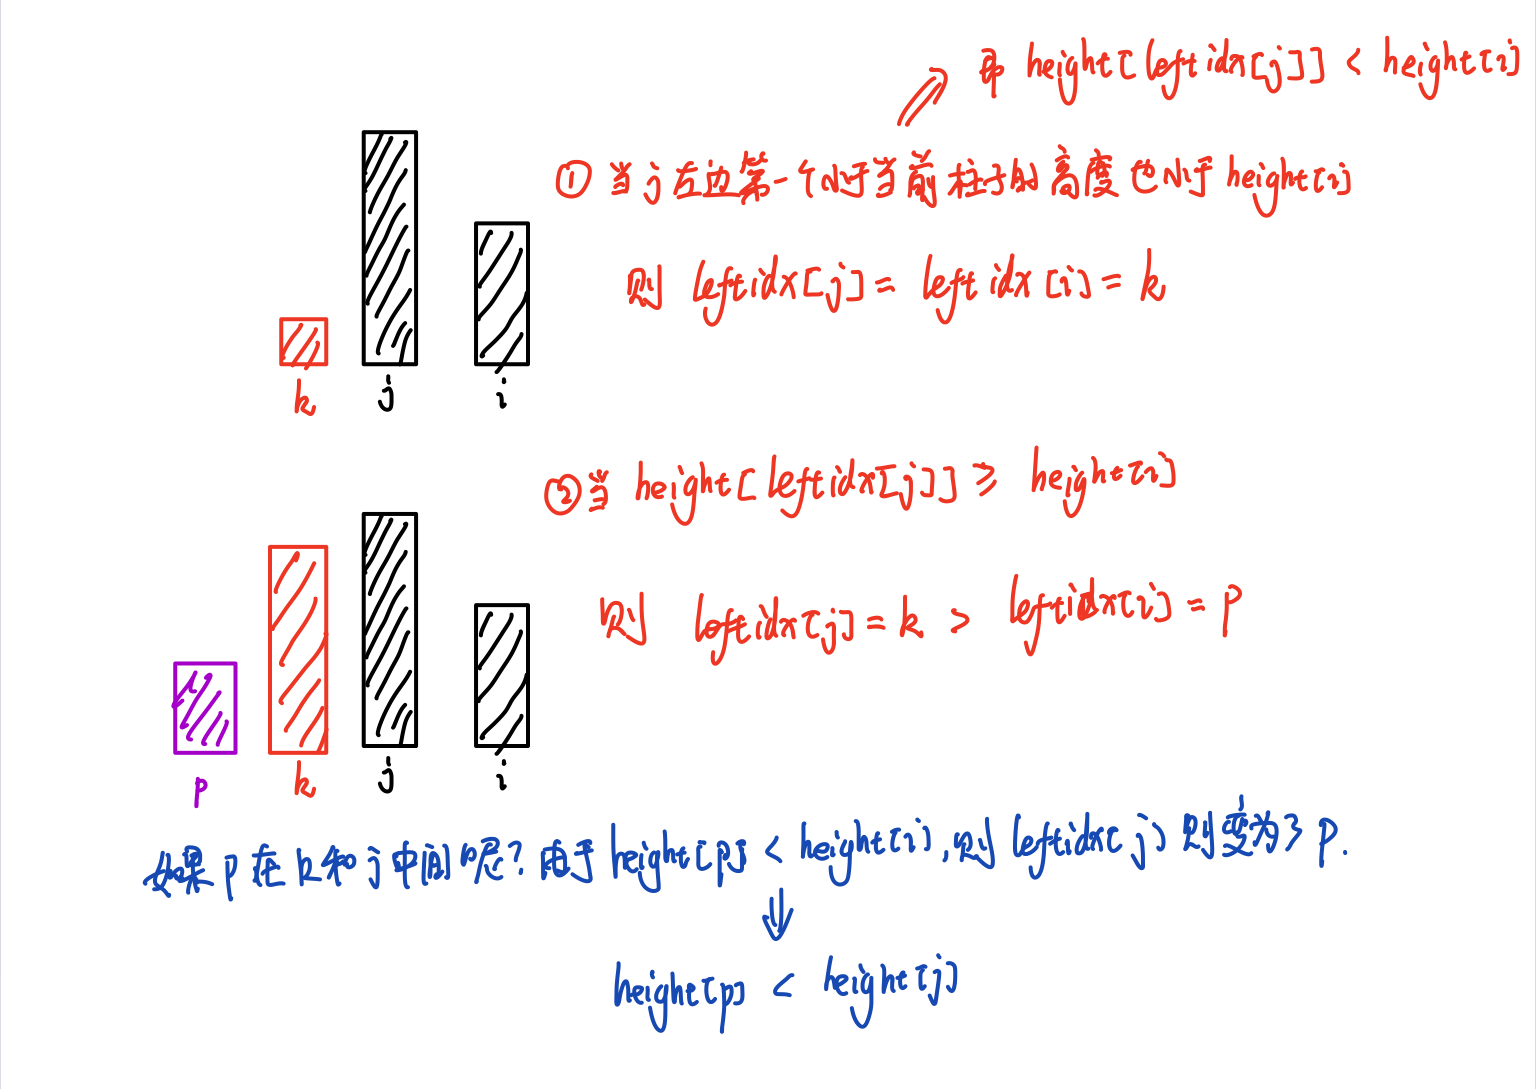 即 height[leftidx[j]] < height[i]
① 当 j 左边第一个小于当前柱子的高度也小于 height[i]
则 leftidx[j] = leftidx[i] = k
k j i
② 当 height[leftidx[j]] ≥ height[i]
则 leftidx[j] = k > leftidx[i] = p
p k j i
如果 p 在 k 和 j 中间呢? 由于 height[p] < height[i], 则 leftidx[j] 则变为了 p.
height[p] < height[j]